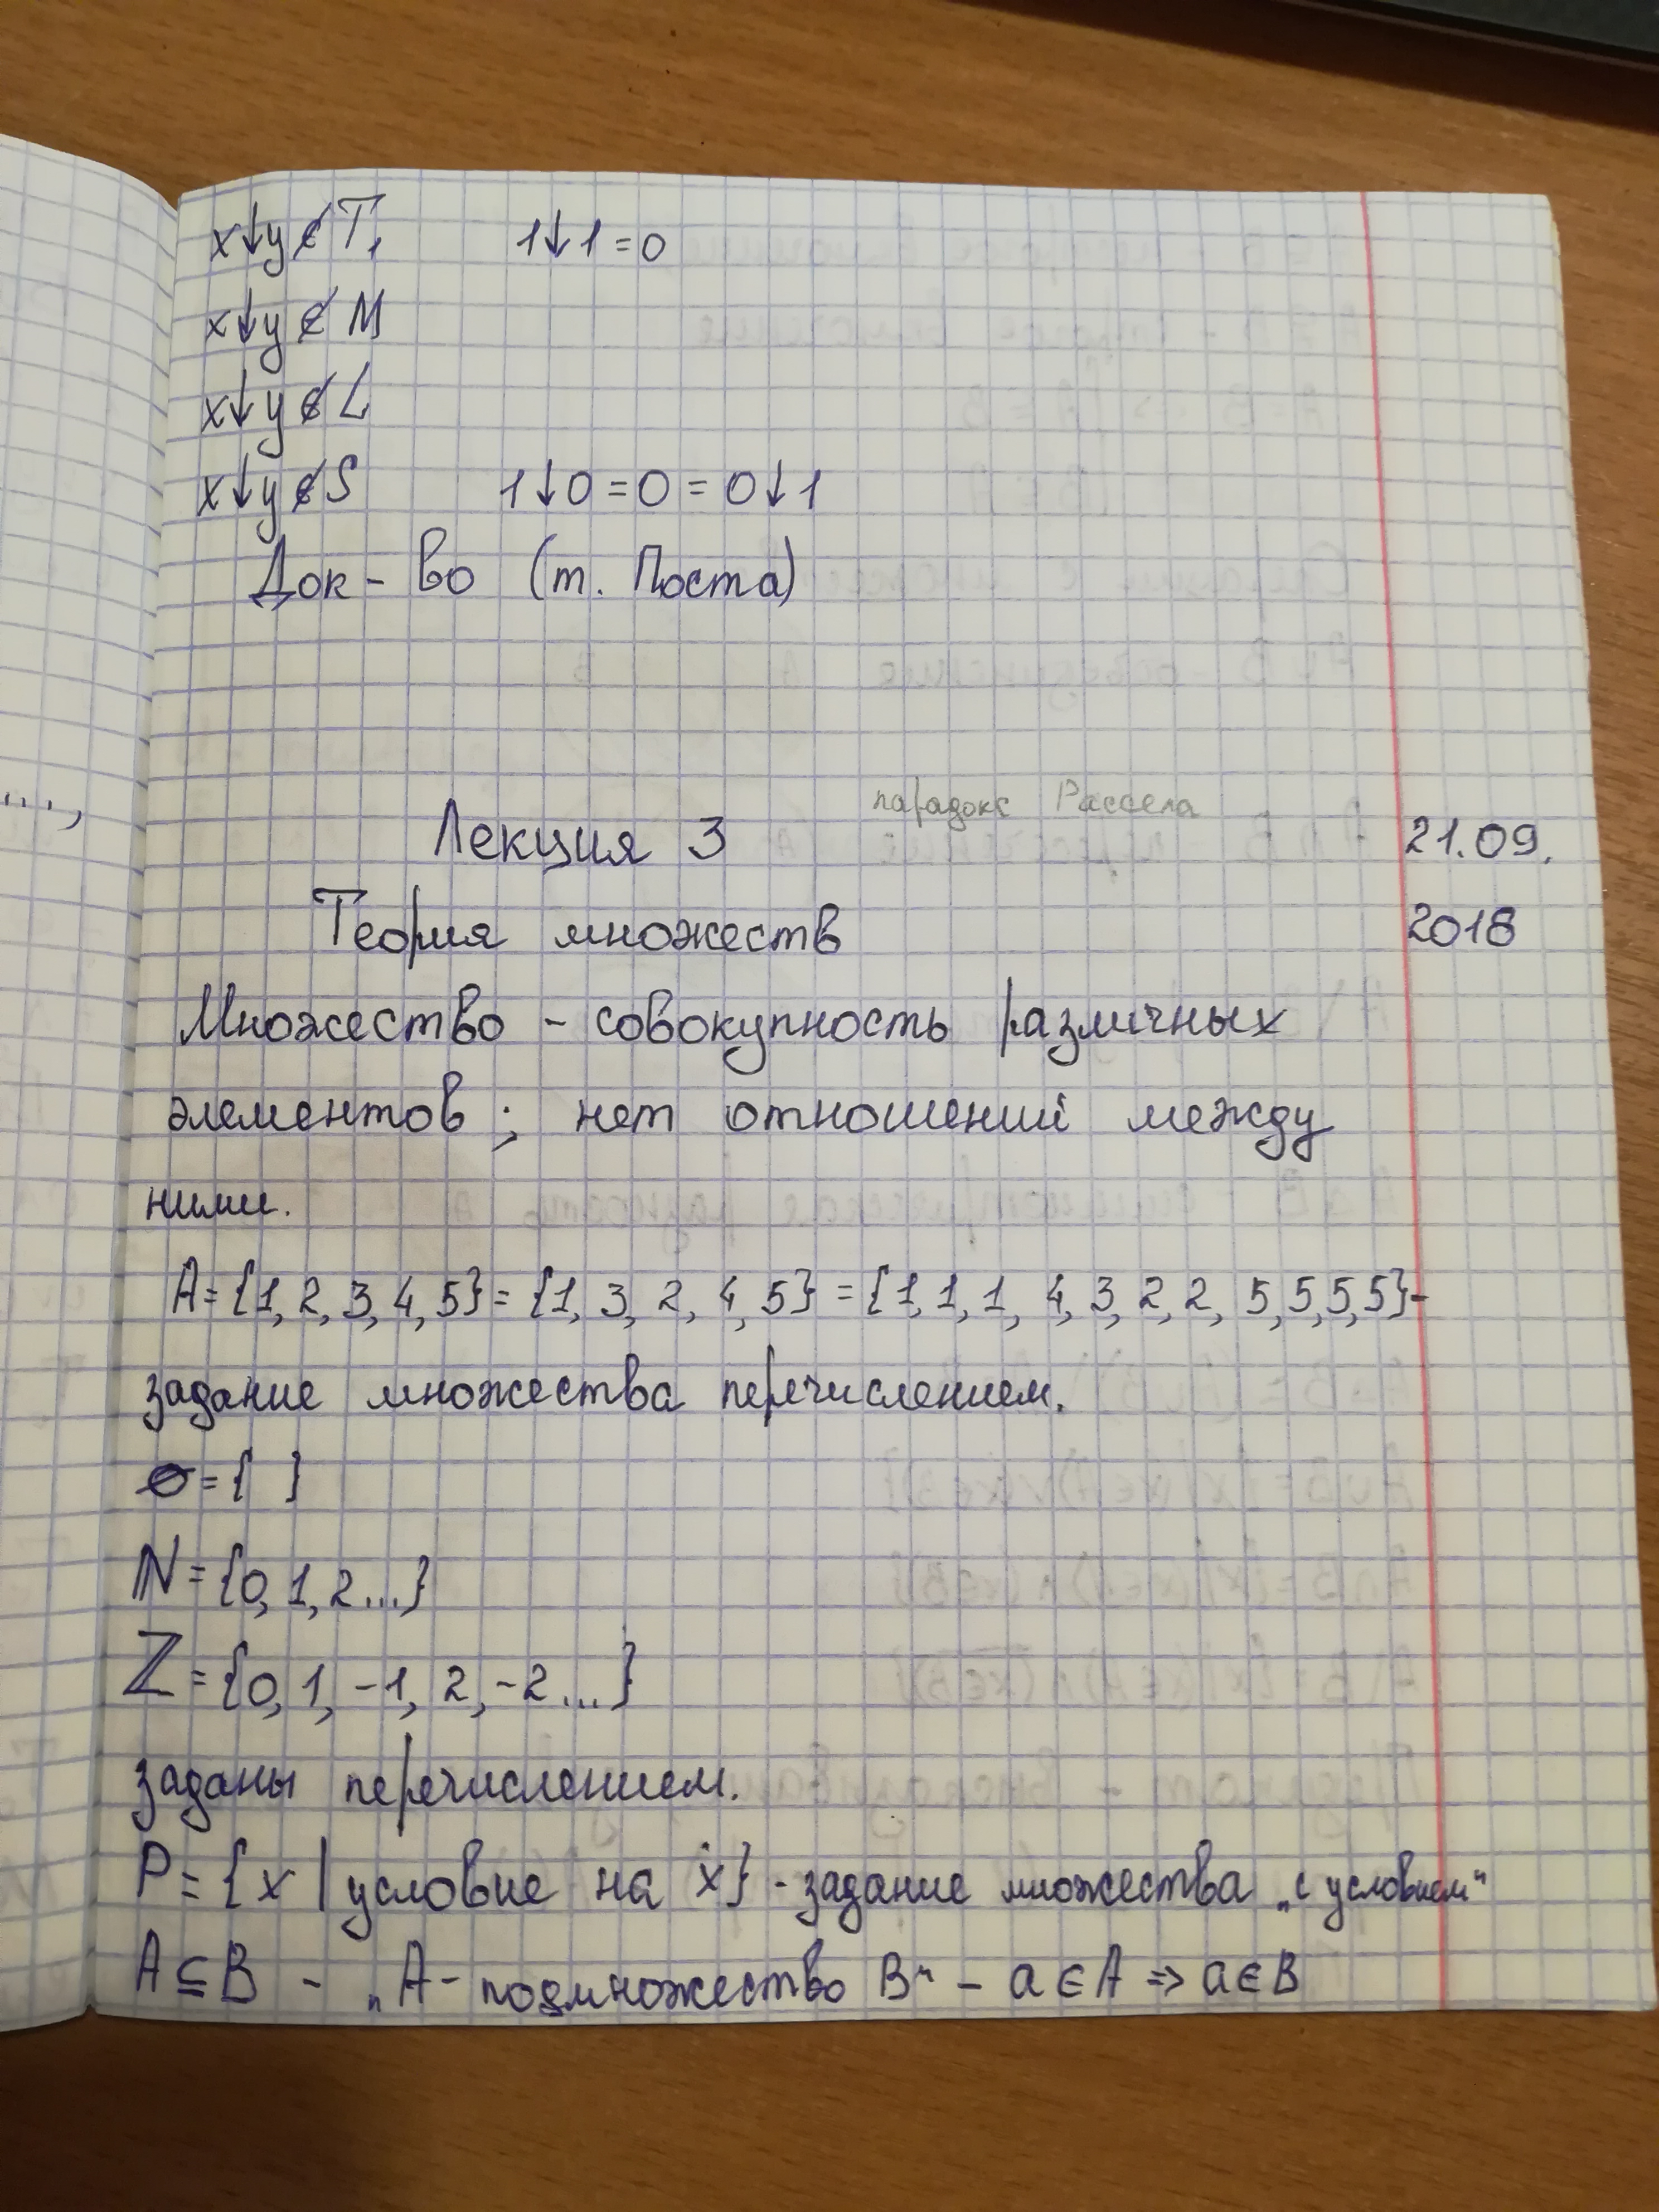 x↓y∉T₁ 1↓1=0
x↓y∉M
x↓y∉L
x↓y∉S 1↓0=0=0↓1
Док-во (т. Поста)
парадокс Рассела
Лекция 3 21.09.
Теория множеств 2018
Множество - совокупность различных
элементов; нет отношений между
ними.
A={1, 2, 3, 4, 5}={1, 3, 2, 4, 5}={1, 1, 1, 4, 3, 2, 2, 5, 5, 5, 5}-
задание множества перечислением.
∅={ }
ℕ={0, 1, 2...}
ℤ={0, 1, -1, 2, -2...}
заданы перечислением.
P={x | условие на x} - задание множества „с условием"
A⊆B - „A - подмножество B" - a∈A ⇒ a∈B